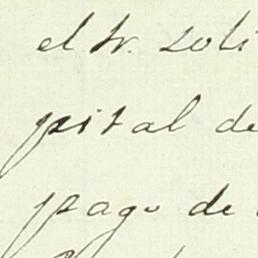 el Sr. soli
pital de
pago de